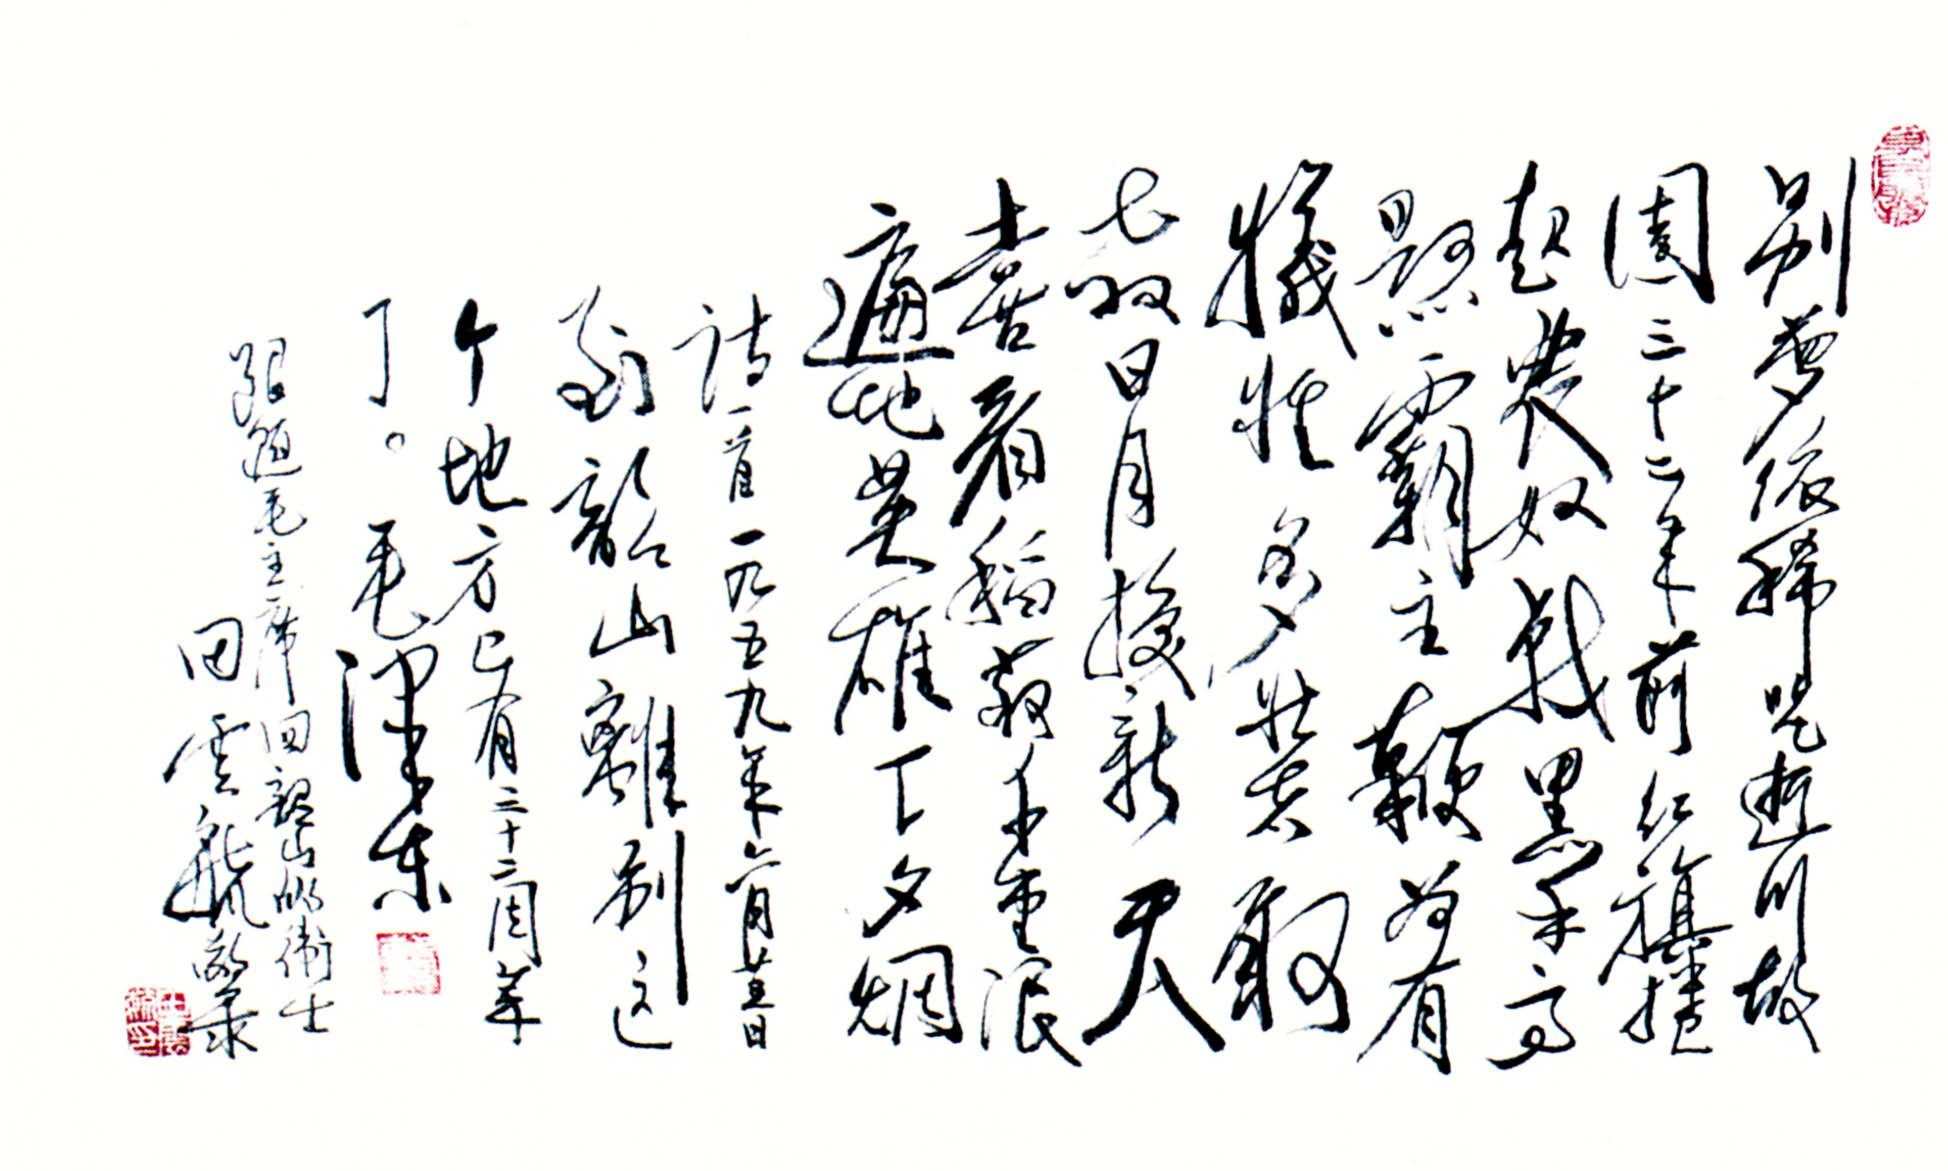 别梦依稀咒逝川故
園三十二年前红旗捲
起農奴戟黑手高
懸霸主鞭為有
犧牲多壮志敢
教日月換新天
喜看稻菽千重浪
遍地英雄下夕烟
诗一首一九五九年六月廿五日
到韶山離别这
个地方已有三十二周年
了。毛澤东
跟随毛主席回韶山的衛士
田雲毓敬录